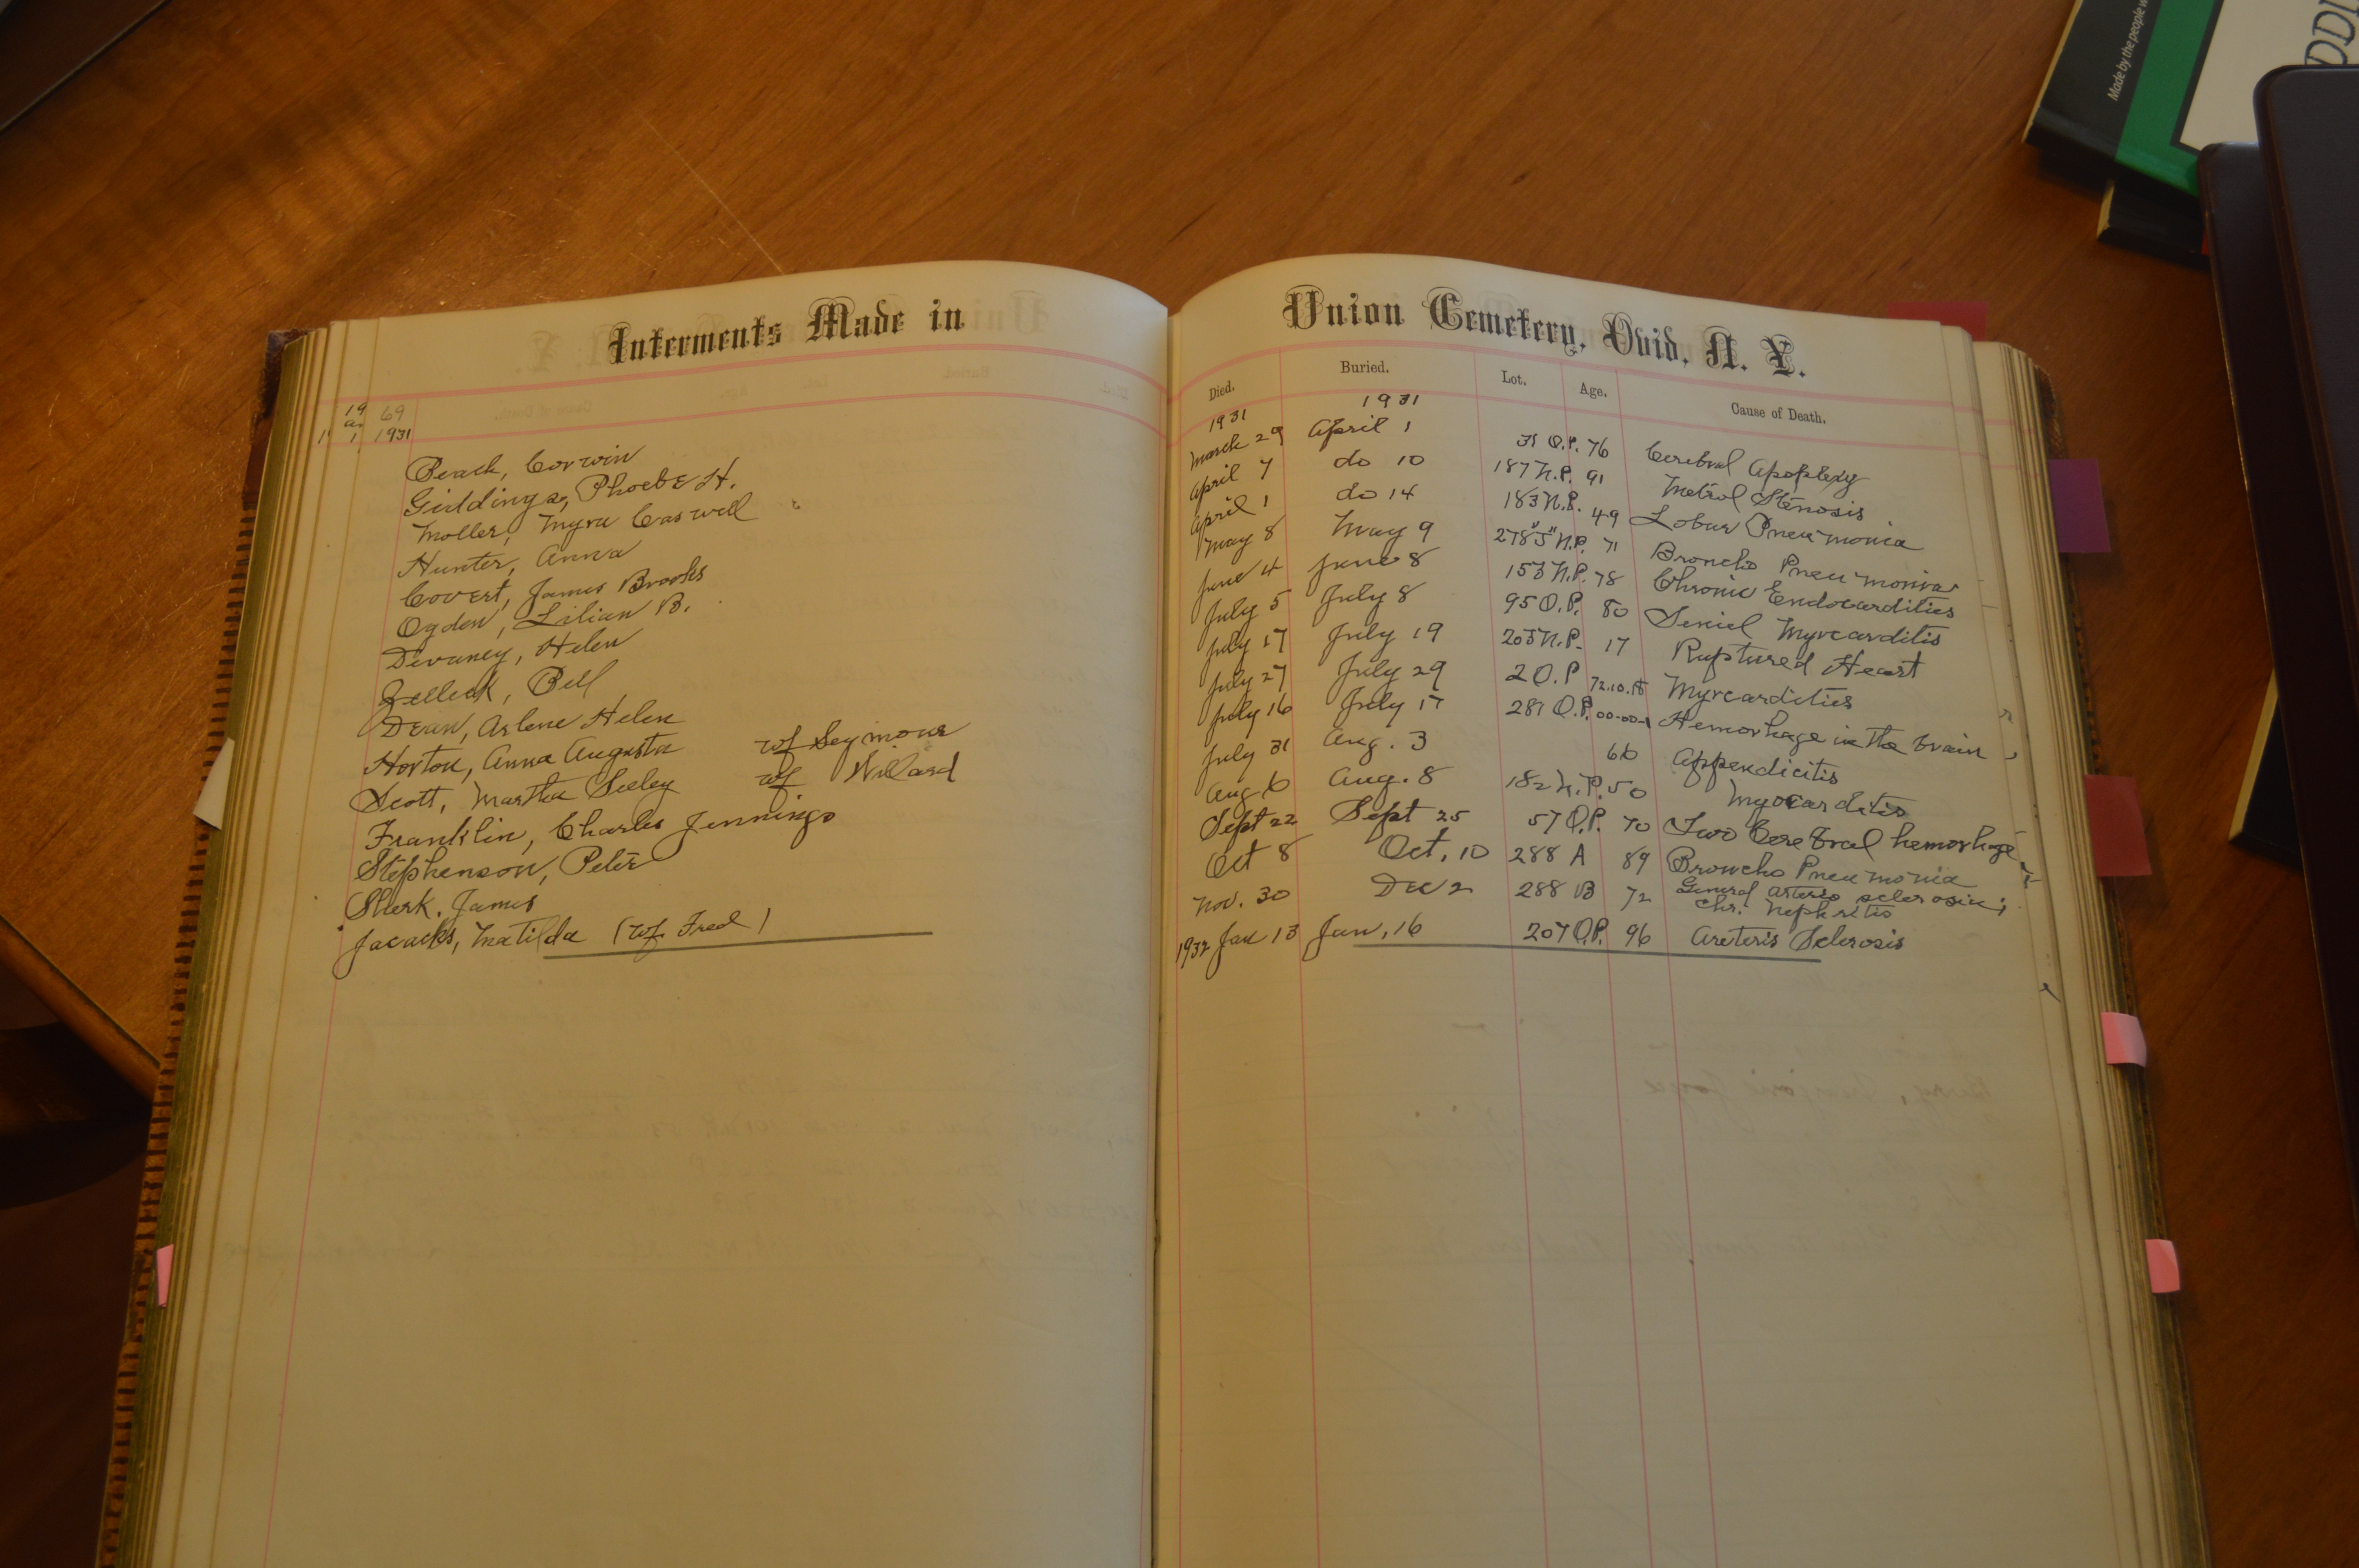 Interments Made in
19 69
1931
Beach, Corwin
Giddings, Phoebe H.
Moller, Myra Caswell
Hunter, Anna
Covert, James Brooks
Ogden, Lilian B.
Devaney, Helen
Zelleck, Bell
Dean, Arlene Helen
Horton, Anna Augusta wf Seymour
Scott, Martha Seeley wf Willard
Franklin, Charles Jennings
Stephenson, Peter
Sherk. James
Jacacks, Matilda (wf. Fred)
Union Cemetery, Ovid, N. Y.
Died. Buried. Lot. Age. Cause of Death.
1931 1931
March 29 April 1 O.P. 76 Cerebral Apoplexy
April 7 do 10 187 N.P. 91 Metrol Stenosis
April 1 do 14 183 N.P. 49 Lobar Pneumonia
May 8 May 9 278 "J" N.P. 71 Broncho Pneumonia
June 4 June 8 153 N.P. 78 Chronic Endocardities
July 5 July 8 95 O.P. 80 Seniel Myrcarditis
July 17 July 19 205 N.P. 17 Ruptured Heart
July 27 July 29 2 O.P 72.10.18 Myrcardities
July 16 July 17 287 O.P. 00-00-1 Hemorhage in the brain
July 31 Aug. 3 66 Appendicitis
Aug 6 Aug. 8 182 N.P. 50 Myocarditis
Sept 22 Sept 25 57 O.P. 70 Two Cerebral hemorhage
Oct 8 Oct. 10 288 A 89 Broncho Pneumonia
Nov. 30 Dec 2 288 B 72 General arterio sclerosis;
Chr. Nephritis
1932 Jan 13 Jan, 16 207 O.P. 96 Areteris Sclerosis
Made by the people